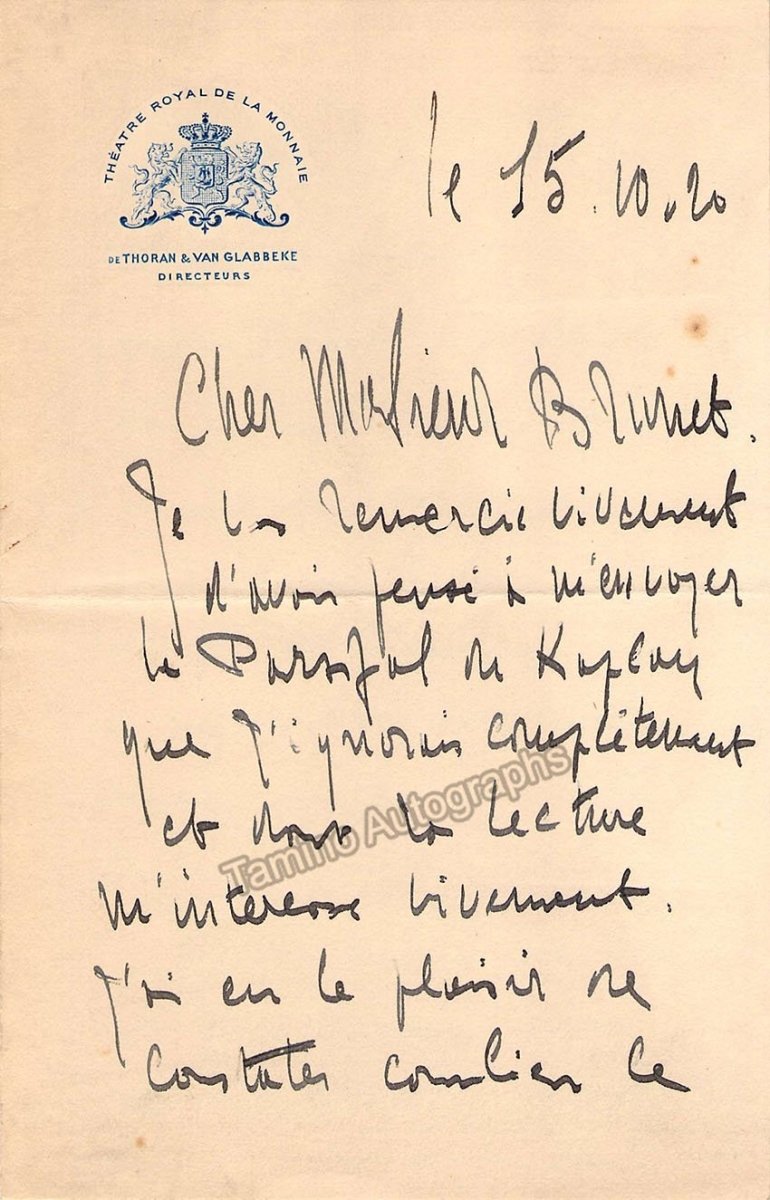 THÉATRE ROYAL DE LA MONNAIE
DE THORAN & VAN GLABBEKE
DIRECTEURS
le 15.10.20
Cher Monsieur Brunet.
Je vs remercie vivement
d'avoir pensé à m'envoyer
le Parsifal de
que j'ignorais complètement
et dont la lecture
m'intéresse vivement.
J'ai eu le plaisir de
constater combien le
Tamino Autographs